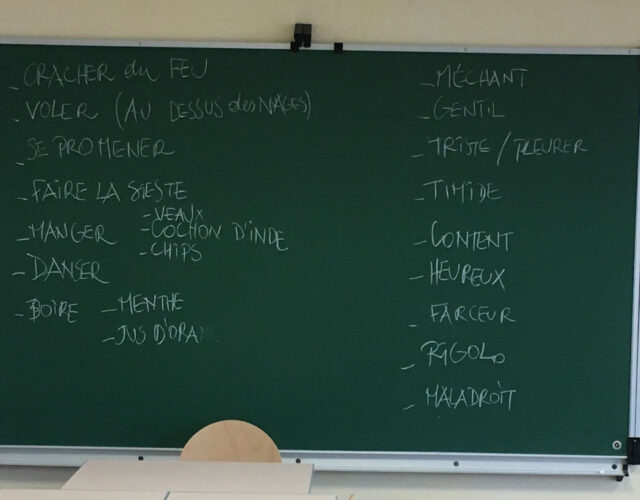 - CRACHER du FEU
- VOLER (AU DESSUS des NUAGES)
- SE PROMENER
- FAIRE LA SIESTE
- MANGER
- VEAUX
- COCHON D'INDE
- CHIPS
- DANSER
- BOIRE
- MENTHE
- JUS D'ORA
- MÉCHANT
- GENTIL
- TRISTE / PLEURER
- TIMIDE
- CONTENT
- HEUREUX
- FARCEUR
- RIGOLO
- MALADROIT